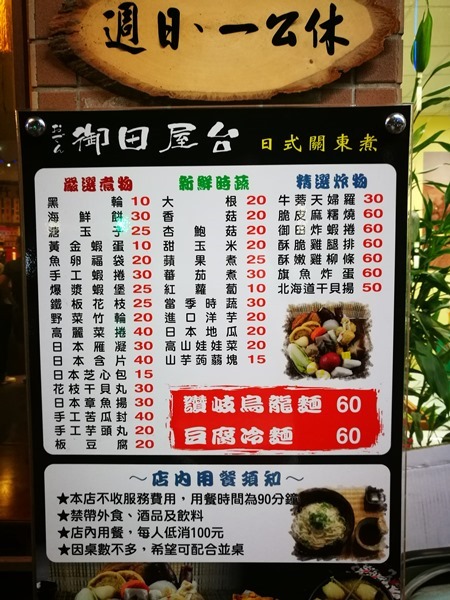 週日、一公休
おでん 御田屋台 日式關東煮
嚴選煮物
黑輪 10
海鮮餅 30
溏玉子 25
黃金蝦蛋 10
魚卵福袋 20
手工蝦捲 30
爆漿蝦堡 25
鐵板花枝 25
野菜竹輪 20
高麗菜捲 40
日本雁凝 30
日本含片 40
日本芝心包 15
花枝干貝丸 30
日本章魚揚 30
手工苦瓜封 40
手工芋頭丸 20
板豆腐 20
新鮮時蔬
大根 20
香菇 20
杏鮑菇 20
甜玉米 20
蘋果煮 25
蕃茄煮 30
紅蘿蔔 10
當季時蔬 30
進口洋芋 20
日本地瓜 20
高山娃娃菜 20
山芋蒟蒻塊 15
精選炸物
牛蒡天婦羅 30
脆皮麻糬燒 60
御田炸蝦捲 60
酥脆雞腿排 60
酥嫩雞柳條 60
旗魚炸蛋 60
北海道干貝揚 50
讚岐烏龍麵 60
豆腐冷麵 60
～店內用餐須知～
★本店不收服務費用，用餐時間為90分鐘
★禁帶外食、酒品及飲料
★店內用餐，每人低消100元
★因桌數不多，希望可配合並桌